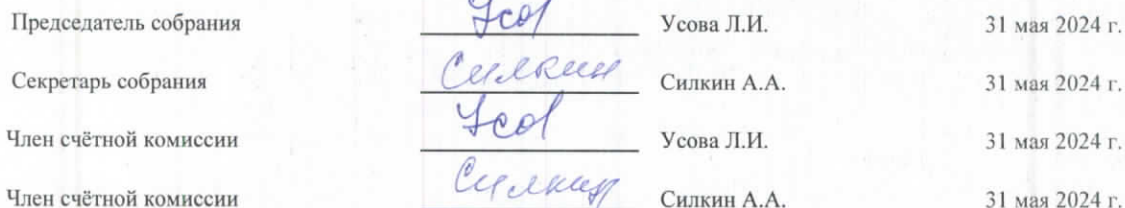 Председатель собрания Усов Усова Л.И. 31 мая 2024 г.
Секретарь собрания Силкин Силкин А.А. 31 мая 2024 г.
Член счётной комиссии Усов Усова Л.И. 31 мая 2024 г.
Член счётной комиссии Силкин Силкин А.А. 31 мая 2024 г.